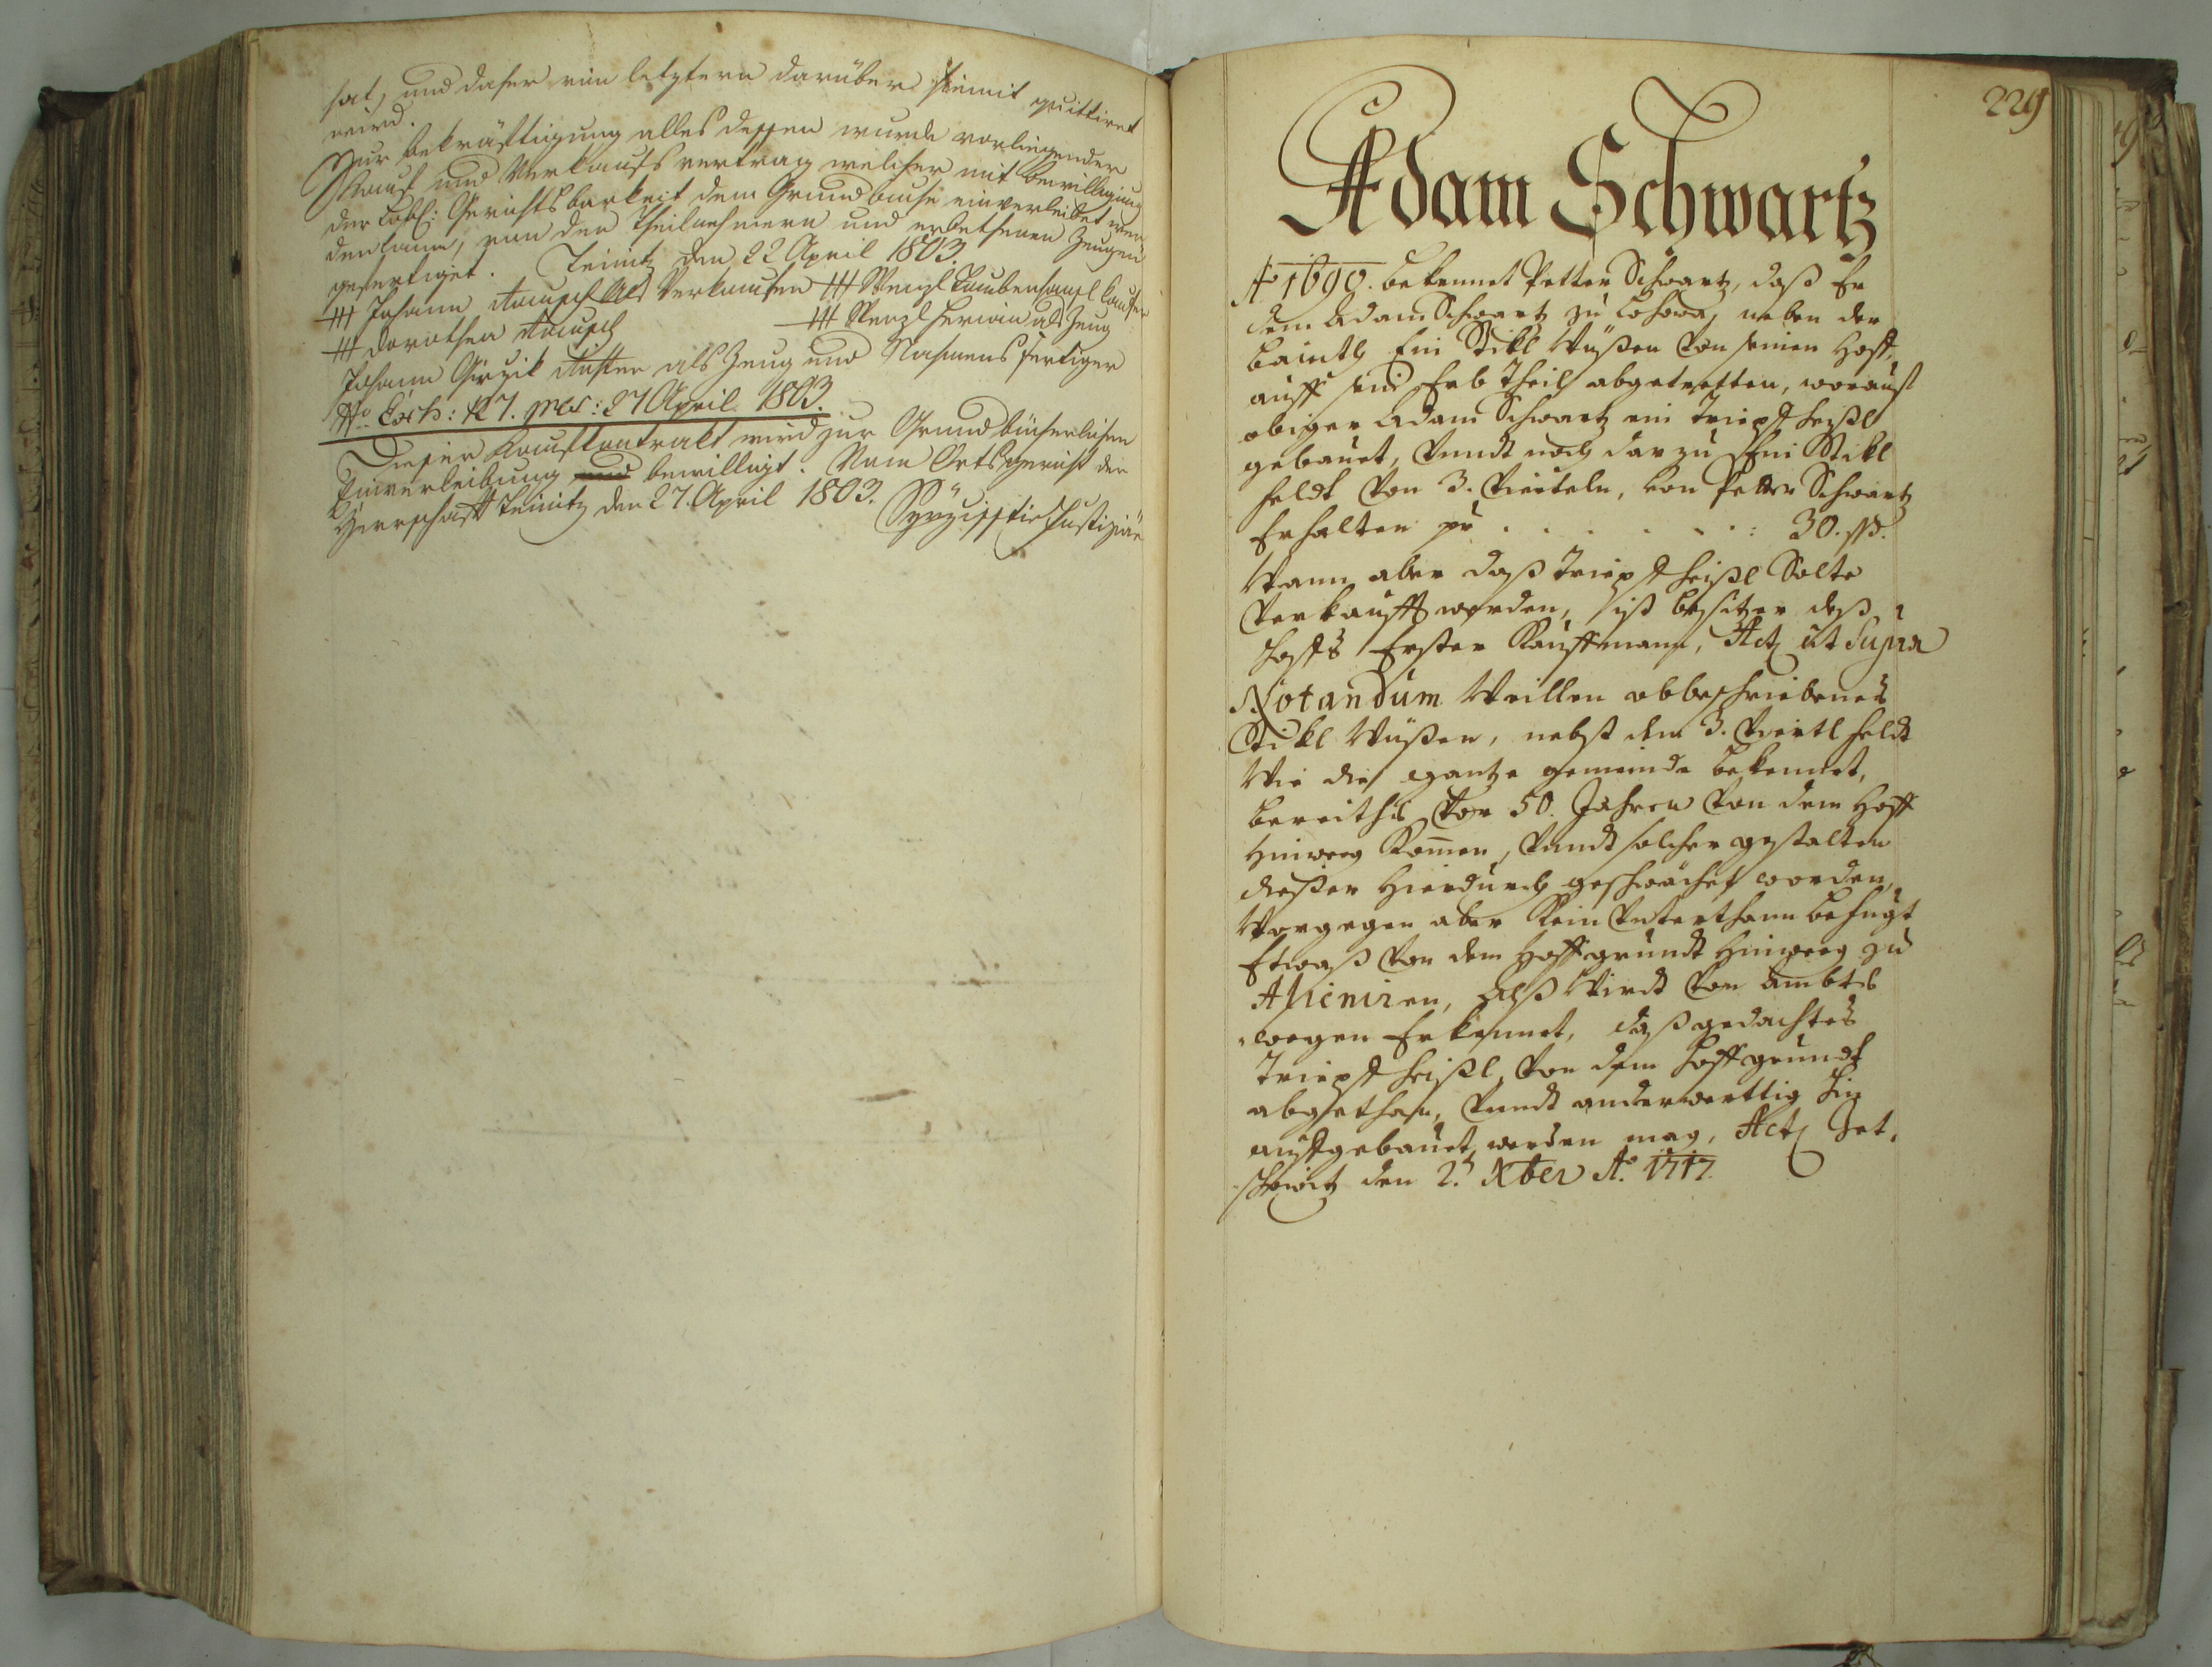 hat, und daher ein letztern darüber hiemit quittiret
wird.
Zur bekräftigung alles dessen wurde vorliegender
Kauf und Verkaufsvertrag welcher mit bewilligung
der Löbl: Gerichtsbarkeit dem Grundbuche einverleibet wer-
den kann, von den Theilnehmern und erbethenen Zeugen
gefertiget. Teinitz den 22 April 1803.
+++ Johann als Verkaufer +++ Wenzl Kaufer
+++ Dorothea +++ Wenzl als Zeug
Johann als Zeug und Nahmens fertiger
27 April 1803.
Dieser Kaufkontrakt wird zur Grundbücherlichen
Einverleibung bewilligt. Vom Ortsgericht der
Herrschaft Teinitz den 27. April 1803.
Justiziär
229
Adam Schwartz
Ao 1690. bekennet Petter Schwartz, daß Er
dem Adam Schwartz zu Lohowa, neben der
Ein Stikl Wüßen Von seinen Hoff,
auff sein Erb Theil abgetretten, worauf
obiger Adam Schwartz ein heißl
gebauet, Vundt noch darzu Ein Stikl
feldt Von 3. Vierteln, von Petter Schwartz
Erhalten pr . . . . . . . : 30. ßß.
Wann aber daß heißl Solte
Verkaufft werden, ist besitzer deß
Hoffs Erster Kauffmann, Act ut Supra
Notandum Weillen obbeschriebenes
Stikl Wüßen, nebst dem 3. Viertl feldt
Wie die gantze gemeinde bekennet,
bereiths Vor 50. Jahren Von dem Hoff
Hinweeg Komen, Vundt solcher gestalten
dießer Hierdurch geschwächet worden,
Worgegen aber Kein Vnterthann befugt
Etwaß Von dem Hoffgrundt Hinweeg zu
Alieniren, Alß Wirdt Von Ambts
wegen Erkennet, daß gedachtes
heißl, Von dem Hoffgrundt
abgethan, Vundt anderwerttig hin
aufgebauet werden mag, Act Jet-
schowitz den 2.t Xber Ao. 1717.